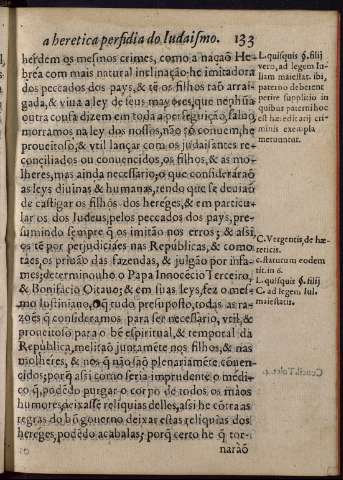 a heretica perfidia do Iudaismo. 133
herdem os mesmos crimes, como a nação He-
brea com mais natural inclinação he imitadora
dos peccados dos pays, & tẽ os filhos taõ arrai-
gada, & viua a ley de seus mayores, que nenhũa
outra cousa dizem em toda a perseguição, saluo
morramos na ley dos nossos, não só conuem, he
proueitoso, & vtil lançar com os judaisantes re-
conciliados ou conuencidos, os filhos, & as mo-
lheres, mas ainda necessario; o que considerárão
as leys diuinas, & humanas, tendo que se deuião
de castigar os filhos dos hereges, & em particu-
lar os dos Iudeus, pelos peccados dos pays, pre-
sumindo sempre q̃ os imitão nos erros; & assi,
os tẽ por perjudiciaes nas Republicas, & como
taes, os priuão das fazendas, & julgão por infa-
mes; determinouho o Papa Innocẽcio Terceiro,
& Bonifacio Oitauo; & em suas leys, fez o mes-
mo Iustiniano. O q̃ tudo presuposto, todas as ra-
zoẽs q̃ consideramos para ser necessario, vtil, &
proueitoso para o bẽ espiritual, & temporal da
Republica, melitão juntamẽte nos filhos, & nas
molheres, & nos q̃ não saõ plenariamẽte conuen-
cidos; porq̃ assi como seria imprudente o médi-
co q̃, podẽdo purgar o corpo de todos os maos
humores, deixasse reliquias delles, assi he cõtra as
regras do bõ gouerno deixar estas reliquias dos
hereges, podẽdo acabalas; porq̃ certo he q̃ tor-
narão
L. quisquis §. filij
vero, ad legem Iu-
liam maiestat. ibi,
paterno deberent
perire supplicio in
quibus paterni hoc
est hæreditarij cri-
minis exempla
metuuntur.
C. Vergentis, de hæ-
reticis.
c. statutum eodem
tit. in 6.
L. quisquis §. filij
C. ad legem Iul.
maiestatis.